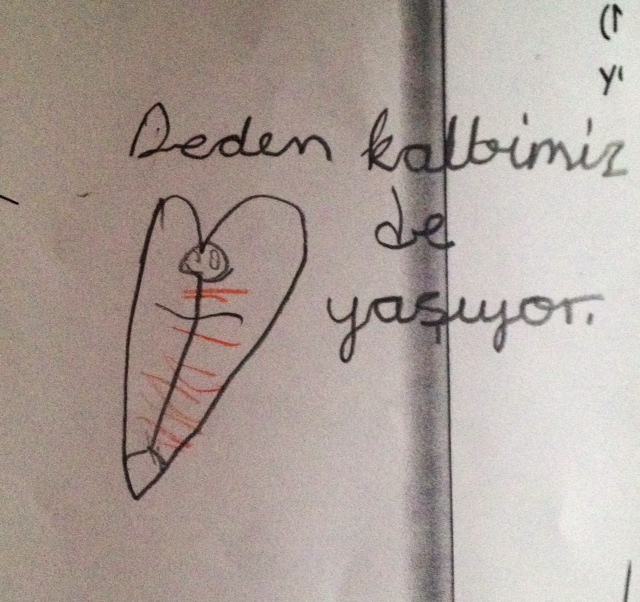 Deden kalbimiz
de
yaşıyor.